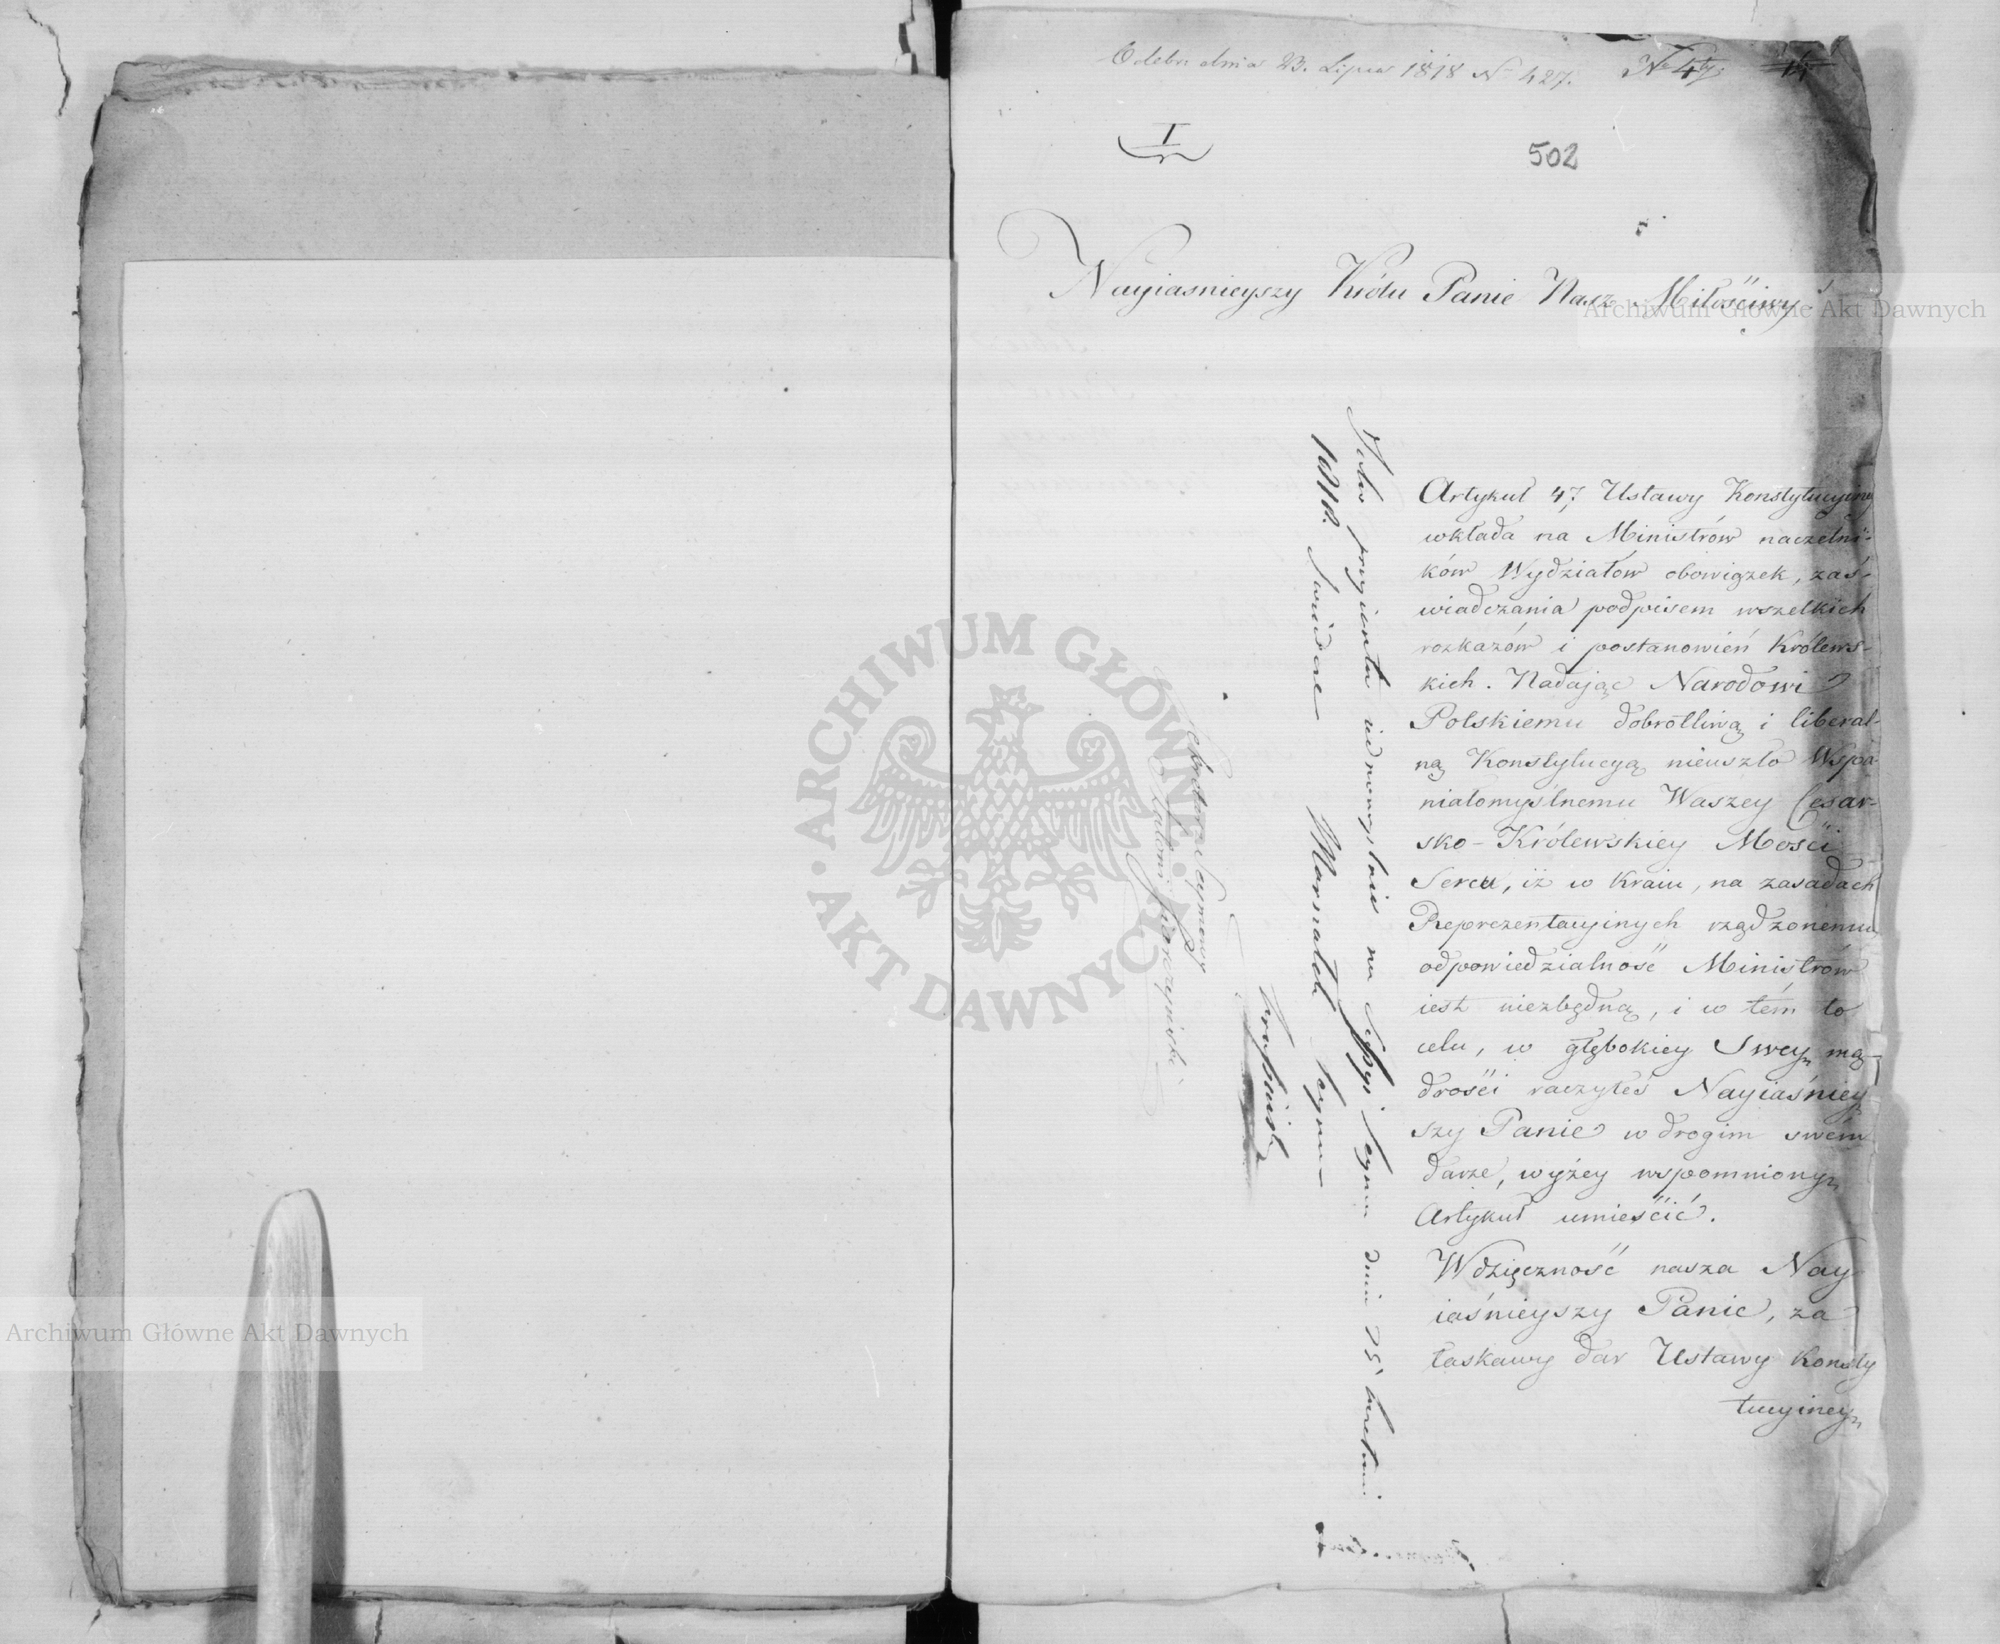 Odebr. dnia 23. Lipca 1818 N 427.
I
502
Nayiasnieyszy Królu Panie Nasz Miłościwy!
Artykuł 47 Ustawy Konstytucyiney
wkłada na Ministrów naczelni-
ków Wydziałów obowiązek, zaś-
wiadczania podpisem wszelkich
rozkazów i postanowień Królews-
kich. Nadając Narodowi
Polskiemu dobrotliwą i liberal-
ną Konstytucyą nieuszło Wspa
niałomyślnemu Waszey Cesar-
sko-Królewskiey Mości
Sercu, iż w Kraiu, na zasadach
Reprezentacyinych rządzonemu
odpowiedzialność Ministrów
iest niezbędną, i w tém to
celu, w głębokiey Swey mą-
drości raczyłeś Nayiaśniey
szy Panie w drogim swém
darze, wyżey wspomniony
Artykuł umieścić.
Wdzięczność nasza Nay
iaśnieyszy Panie, za
łaskawy dar Ustawy Konsty
tucyiney
przyienta iednomyslnie na Sessyi Seymu dnia 25 kwietnia
1818. Swidzę Marszałek Seymu
Krasiński
Sekretarz Seymowy
ARCHIWUM GŁÓWNE AKT DAWNYCH
Archiwum Główne Akt Dawnych
Archiwum Główne Akt Dawnych